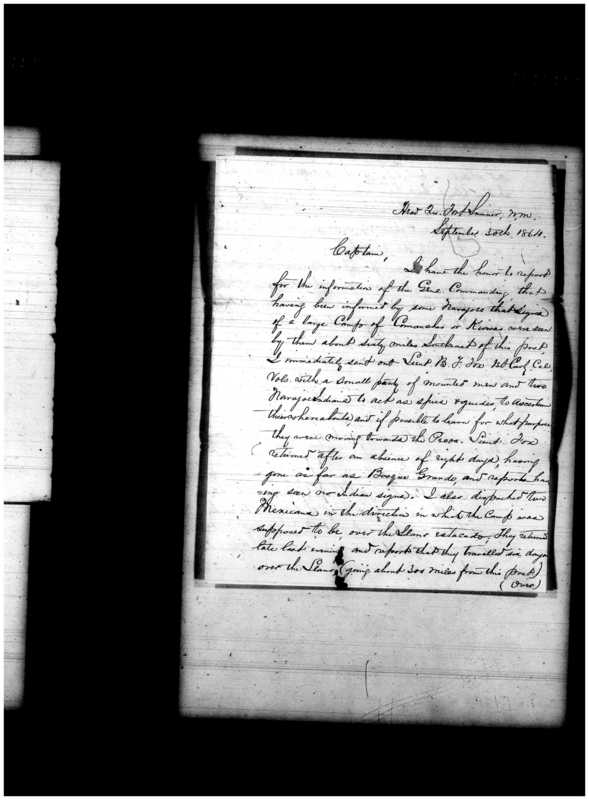 Head Qrs. Fort Sumner, N.M.
September 30th 1864.
Captain,
I have the honor to report
for the information of the Genl Commanding, that
having been informed by some Navajoes that signs
of a large Camp of Comanches or Kiowas were seen
by them about sixty miles Southeast of this post,
I immediately sent out Lieut. B. F. Fox 1st Cavly Cal.
Vols. with a small party of mounted men and two
Navajoe Indians to act as spies & guides, to ascertain
their whereabouts, and if possible to learn for what purpose
they were moving towards the Pecos. Lieut. Fox
returned after an absence of eight days, having
gone as far as Bosque Grande, and reports ha-
ving seen no Indian signs. I also dispatched two
Mexicans in the direction in which the Camp was
supposed to be, over the Llano estacado, They returned
late last evening and report that they travelled six days
over the Llano, (going about 300 miles from this post)
(Over)